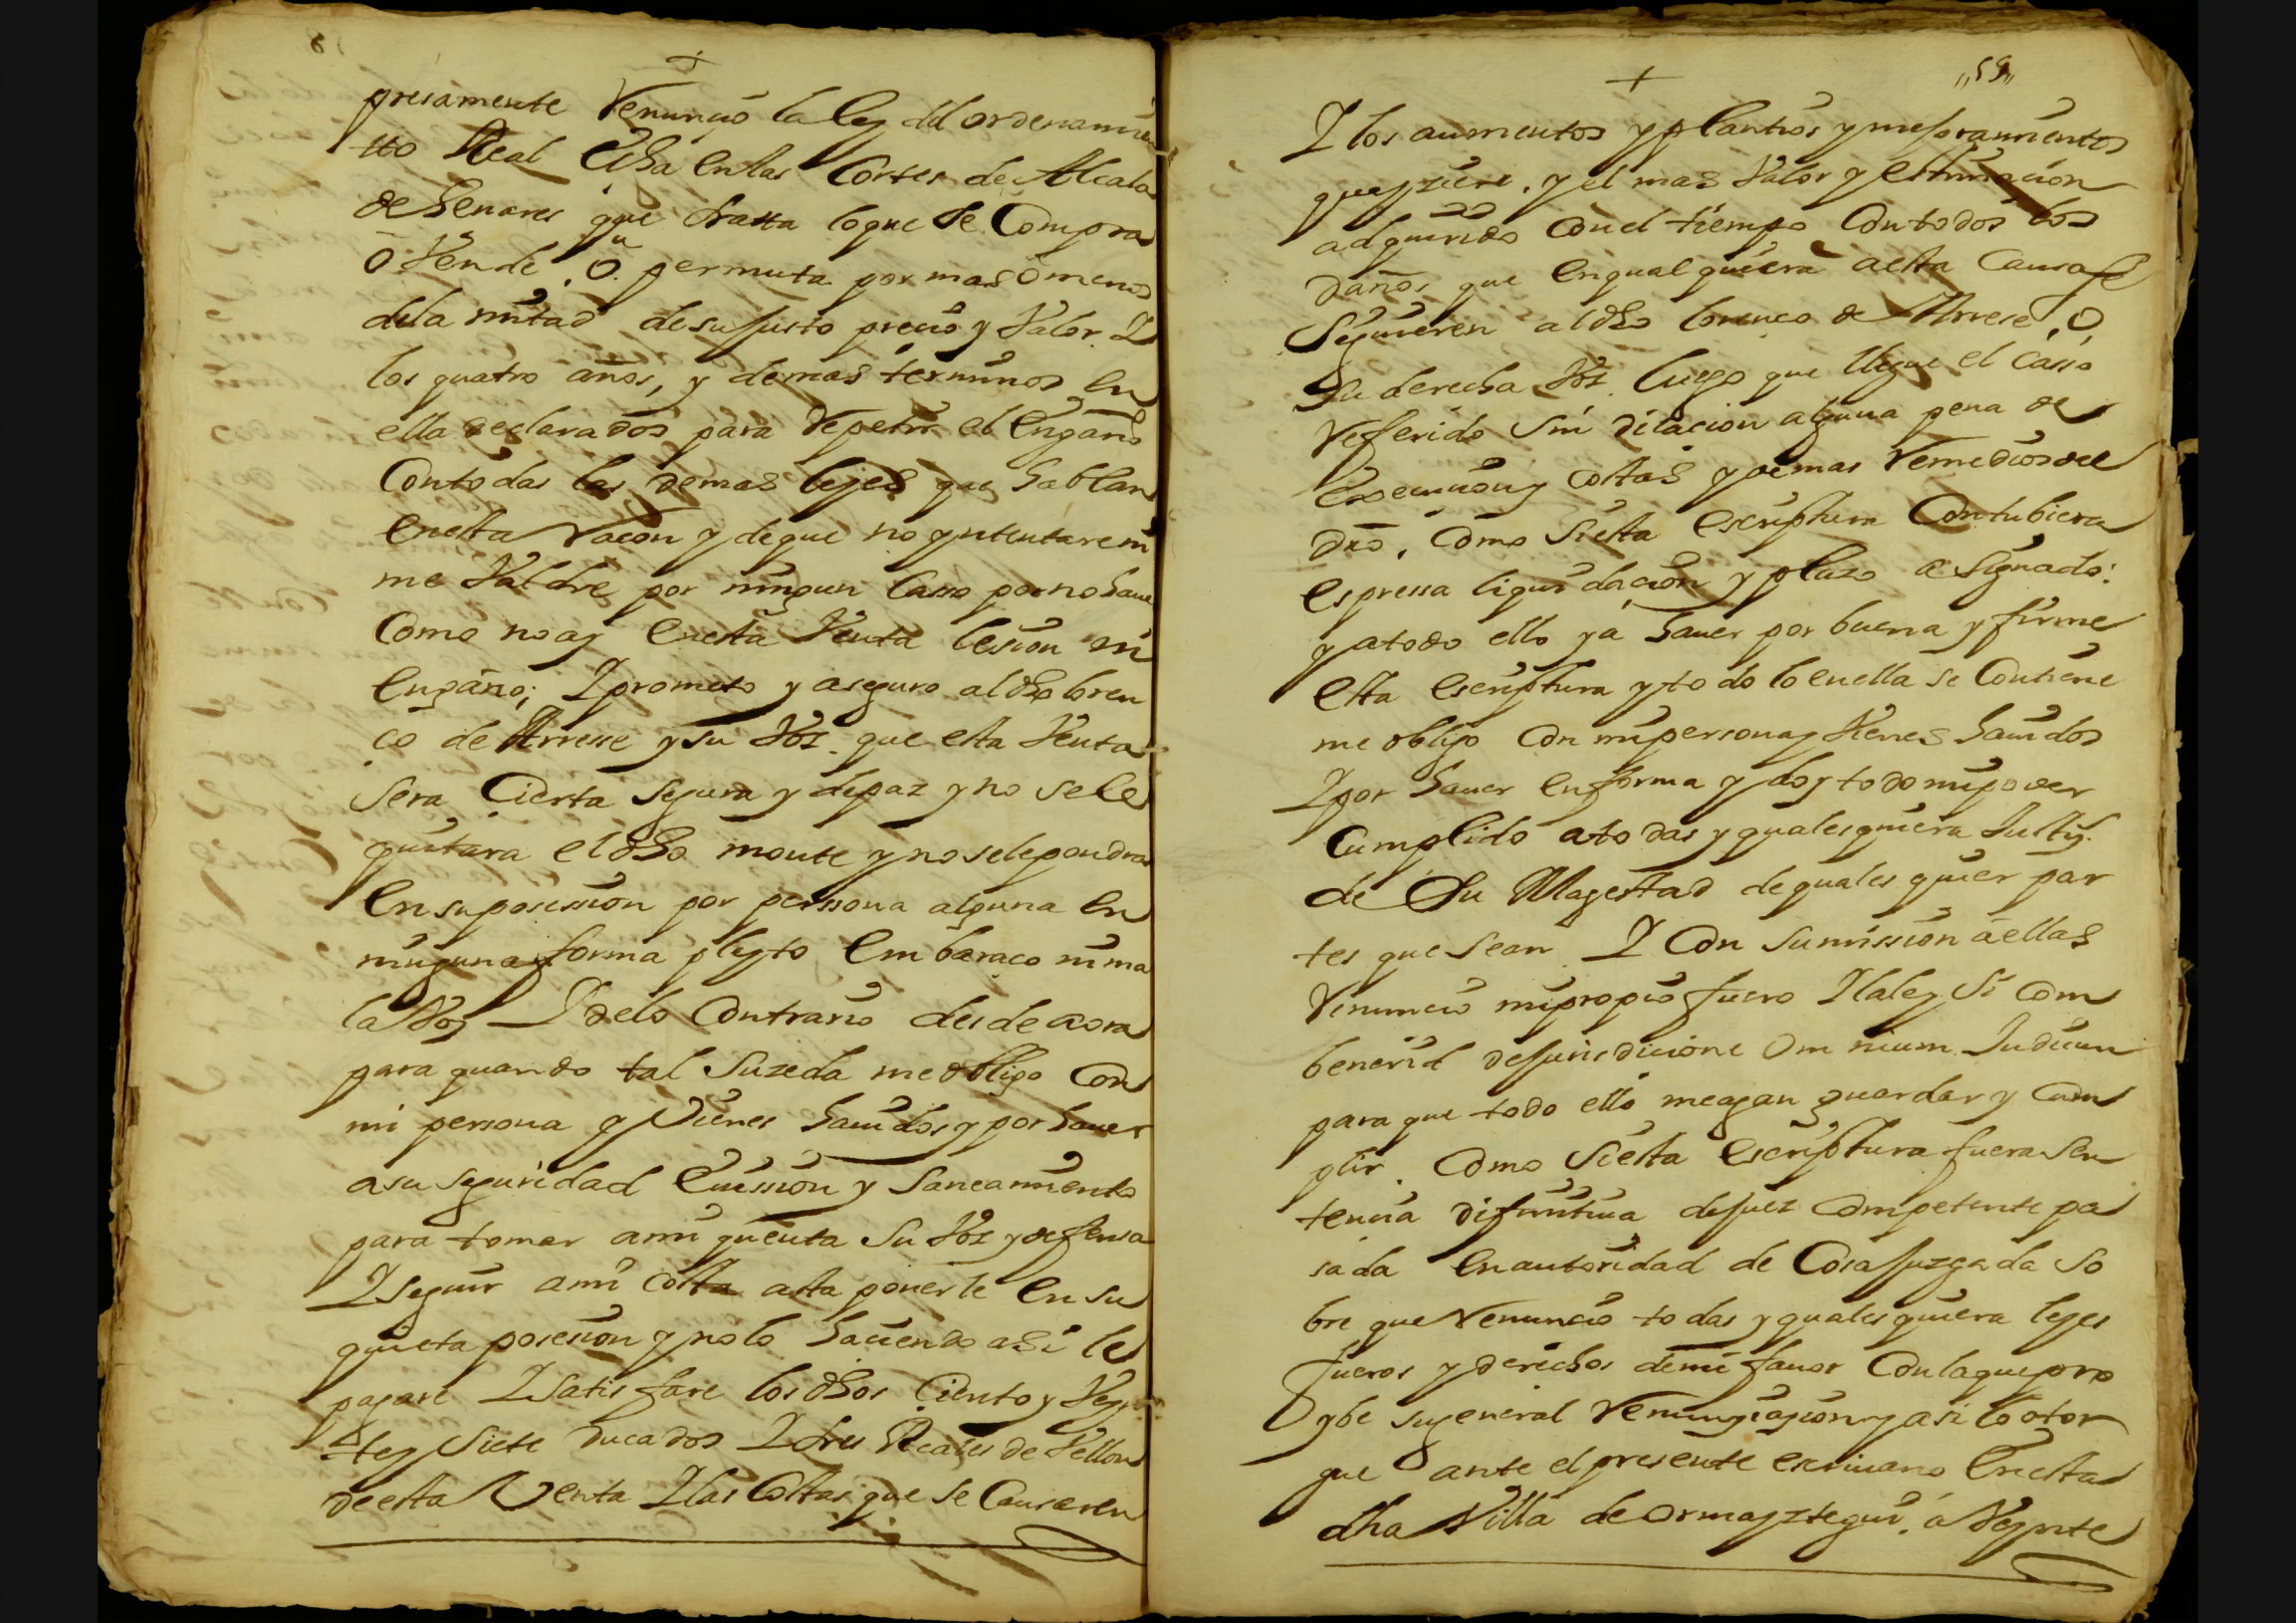 +
presamente Renunçio la ley del ordenamie
tto Real echa en las Cortes de Alcala
de henares que tratta lo que se Compra
o Vende, o permuta por mas o menos
de la mitad de su justo precio y Valor. Y
los quatro años, y demas terminos en
ella declarados para Repetir el engaño
Con todas las demas leyes que hablan
en esta Racon y de que no yntentare ni
me Valdre por ningun Casso por no haue
Como no ay en esta Venta lesion ni
engaño; Y prometo y aseguro al dho loren
ço de Arrese y su Voz que esta Venta
sera Cierta segura y de paz y no se le
quitara el dho monte y no se le pondra
en su posession por perssona alguna en
ninguna forma pleyto embaraco ni ma
la Voz Y de lo Contrario desde aora
para quando tal suzeda me obligo Con
mi persona y Vienes hauidos y por hauer
a su seguridad euission y saneamiento
para tomar a mi quenta su Voz y defensa
Y seguir a mi costa asta ponerle en su
quieta posesion y no lo haciendo asi le
pagare Y satisfare los dhos Ciento y Veyn
te y siete ducados Y tres Reales de Vellon
de esta Venta Y las Costas que se Causaren
+
59
Y los aumentos y plantios y mejoramientos
que yziere, y el mas Valor y estimacion
adquirido con el tiempo Con todos los
daños que en qualquiera a esta Causa se
siguieren al dho lorenço de Arrese, o,
su derecha Voz luego que llegue el casso
Refferido sin dilacion alguna pena de
execucion y costas y demas Remedios del
dro, Como si esta escriptura Contubiera
espressa liquidacion y plazo asignado:
y a todo ello y a hauer por buena y firme
esta escriptura y todo lo en ella se Contiene
me obligo con mi persona y Vienes hauidos
Y por hauer en forma y doy todo mi poder
Cumplido a todas y qualesquiera Justiz.
de Su Magestad de quales quier par
tes que sean Y Con sumission a ellas
Renuncio mi propio fuero Y la ley si com
benerid de jurisdicione omnium Judicun
para que todo ello me agan guardar y cum
plir. Como si esta escriptura fuera sen
tencia difinitiua de juez Competente pa
sada en autoridad de Cosa Juzgada so
bre que Renuncio todas y quales quiera leyes
fueros y derechos de mi fauor Con la que pro
ybe su general Renunçiaçion y asi lo otor
gue ante el presente escriuano en esta
dha Villa de ormayztegui, a Veynte